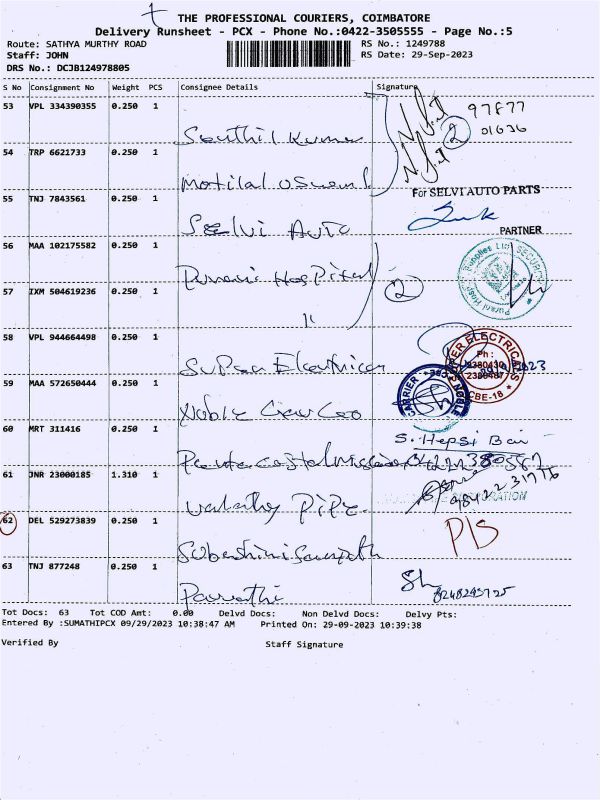 THE PROFESSIONAL COURIERS, COIMBATORE
Delivery Runsheet - PCX - Phone No.:0422-3505555 - Page No.:5
Route: SATHYA MURTHY ROAD RS No.: 1249788
Staff: JOHN RS Date: 29-Sep-2023
DRS No.: DCJB124978805
S No Consignment No Weight PCS Consignee Details Signature
53 VPL 334390355 0.250 1
Senthil Kumar 97877
01636
2
54 TRP 6621733 0.250 1
Motilal Oswal
55 TNJ 7843561 0.250 1
For SELVI AUTO PARTS
Selvi Auto
PARTNER
56 MAA 102175582 0.250 1
Purani Hospital
2
57 IXM 504619236 0.250 1
11
58 VPL 944664498 0.250 1
Super Electrical
SUPER ELECTRICALS
Ph :
2380430
2380487
CBE-18
59 MAA 572650444 0.250 1
Noble Carrier
CARRIER NOBLE
60 MRT 311416 0.250 1
S. Hepsi Bai
Pentecostal Mission
61 JNR 23000185 1.310 1
Pipe
62 DEL 529273839 0.250 1
Subashini Sampath
63 TNJ 877248 0.250 1
Parvathi
Tot Docs: 63 Tot COD Amt: 0.00 Delvd Docs: Non Delvd Docs: Delvy Pts:
Entered By :SUMATHIPCX 09/29/2023 10:38:47 AM Printed On: 29-09-2023 10:39:38
Verified By Staff Signature